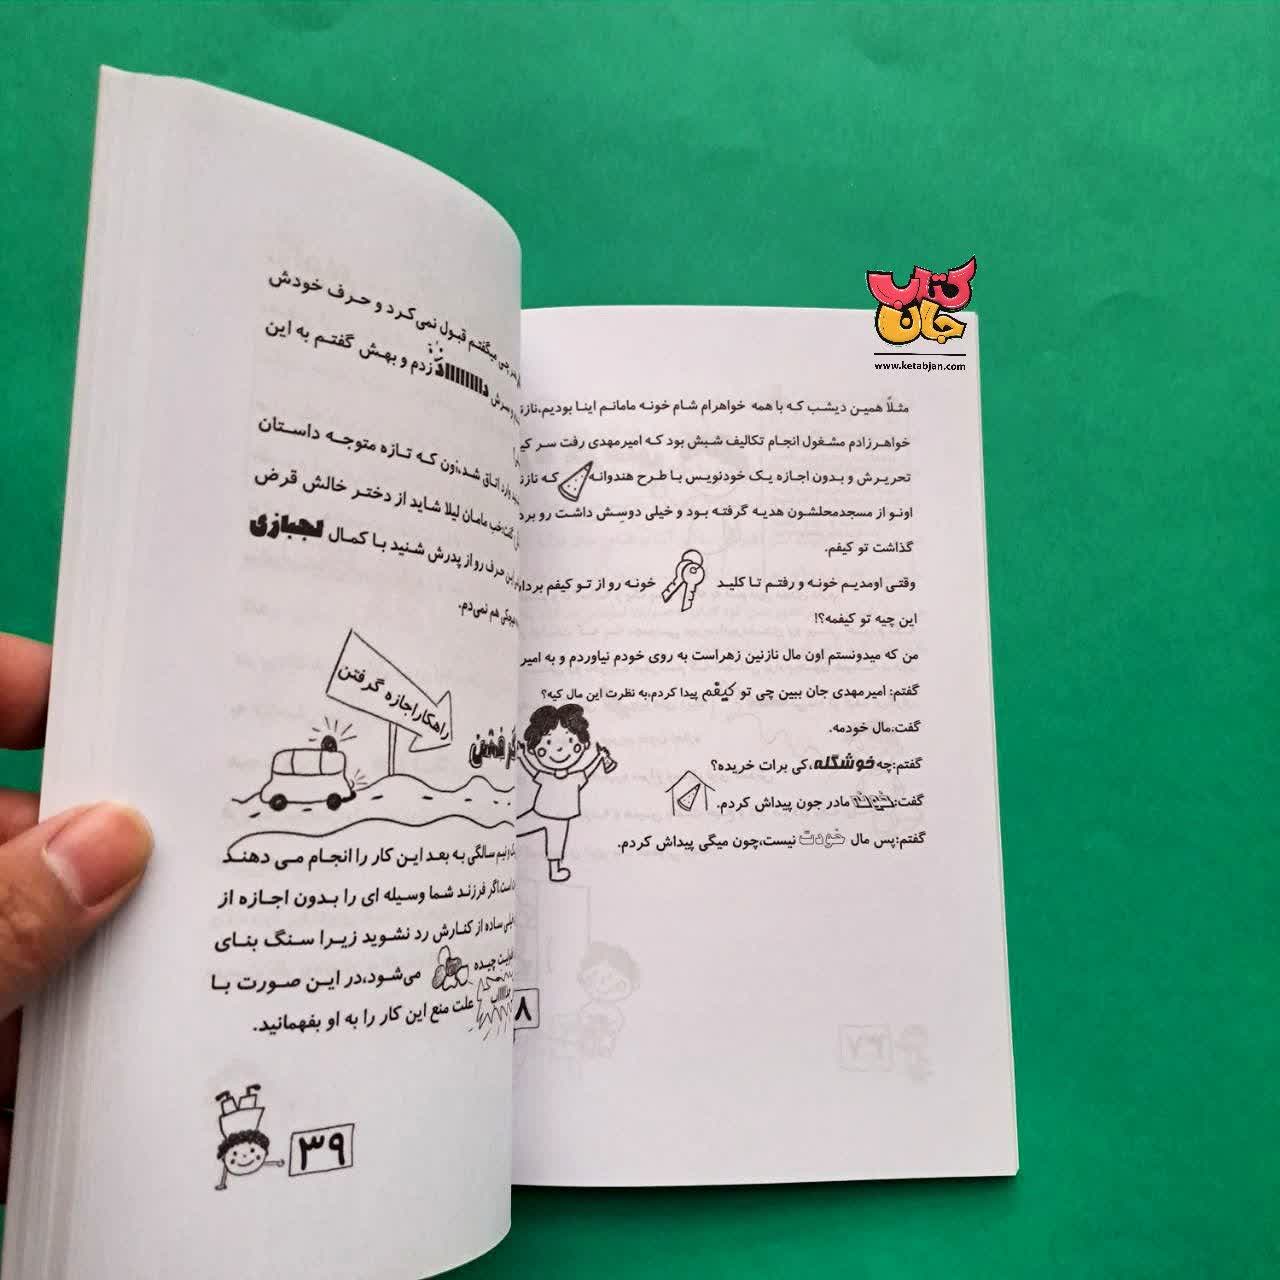 کتاب
جان
www.ketabjan.com
مثلاً همین دیشب که با همه خواهرام شام خونه مامانم اینا بودیم،
خواهرزادم مشغول انجام تکالیف شبش بود که امیرمهدی رفت سر
تحریرش و بدون اجازه یک خودنویس با طرح هندوانه که
اونو از مسجدمحلشون هدیه گرفته بود و خیلی دوسش داشت رو
گذاشت تو کیفم.
وقتی اومدیم خونه و رفتم تا کلید خونه رو از تو کیفم
این چیه تو کیفمه؟!
من که میدونستم اون مال نازنین زهراست به روی خودم نیاوردم و به
گفتم: امیرمهدی جان ببین چی تو کیفم پیدا کردم،به نظرت این مال کیه؟
گفت:مال خودمه.
گفتم:چه خوشگله،کی برات خریده؟
گفت:خونه مادر جون پیداش کردم.
گفتم:پس مال خودت نیست،چون میگی پیداش کردم.
۸
چی میگفتم قبول نمی‌کرد و حرف خودش
زدم و بهش گفتم به این
وارد اتاق شد،اون که تازه متوجه داستان
گفت:خب مامان لیلا شاید از دختر خالش قرض
این حرف رو از پدرش شنید با کمال لجبازی
هم نمی‌دم.
راهکاراجازه گرفتن
و نیم سالگی به بعد این کار را انجام می دهند
است.اگر فرزند شما وسیله ای را بدون اجازه از
ساده از کنارش رد نشوید زیرا سنگ بنای
چیده می‌شود،در این صورت با
علت منع این کار را به او بفهمانید.
۳۹